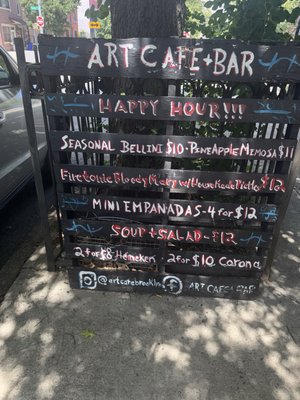 ART CAFÉ+BAR
HAPPY HOUR!!!
SEASONAL BELLINI $10 · PINEAPPLE MIMOSA $11
Firetonic Bloody Mary w/House Made Pickle $12
MINI EMPANADAS - 4 for $12
SOUP + SALAD - $12
2 for $8 Heineken 2 for $10 Corona
@artcafebrooklyn ART CAFE & BAR